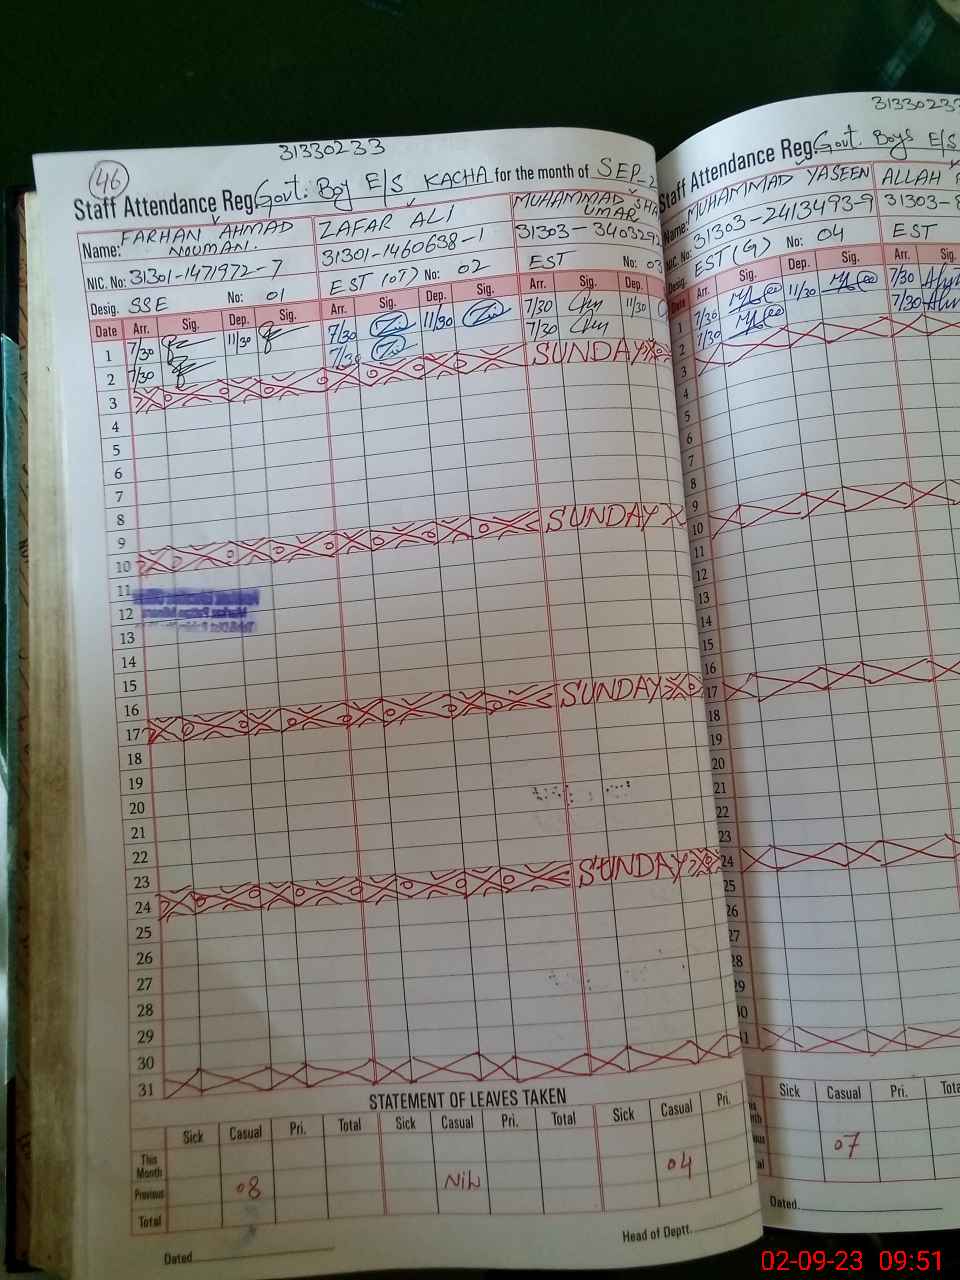 31330233
46
Staff Attendance Reg. Govt. Boy E/S KACHA for the month of SEP-2
Name: FARHAN AHMAD NOUMAN.
ZAFAR ALI
MUHAMMAD SHA
UMAR
NIC. No: 31301-1471972-7
31301-1460638-1
31303-3403292
Desig. SSE No: 01
EST (OT) No: 02
EST No: 03
Date Arr. Sig. Dep. Sig. Arr. Sig. Dep. Sig. Arr. Sig. Dep.
1 7/30 11/30 7/30 11/30 7/30 11/30
2 7/30 7/30 7/30
3 SUNDAY
4
5
6
7
8
9
10 SUNDAY
11
12
13
14
15
16
17 SUNDAY
18
19
20
21
22
23
24 SUNDAY
25
26
27
28
29
30
31
STATEMENT OF LEAVES TAKEN
Sick Casual Pri. Total Sick Casual Pri. Total Sick Casual Pri.
This Month
Previous 08 Nil 04
Total
Dated
Head of Deptt.
31330233
Staff Attendance Reg. Govt. Boys E/S
Name: MUHAMMAD YASEEN
ALLAH
NIC. No: 31303-2413493-9
31303-8
Desig. EST (G) No: 04
EST
Date Arr. Sig. Dep. Sig. Arr. Sig.
1 7/30 11/30 7/30
2 7/30 7/30
3
4
5
6
7
8
9
10
11
12
13
14
15
16
17
18
19
20
21
22
23
24
25
26
27
28
29
30
31
Sick Casual Pri. Total
07
Dated
02-09-23 09:51